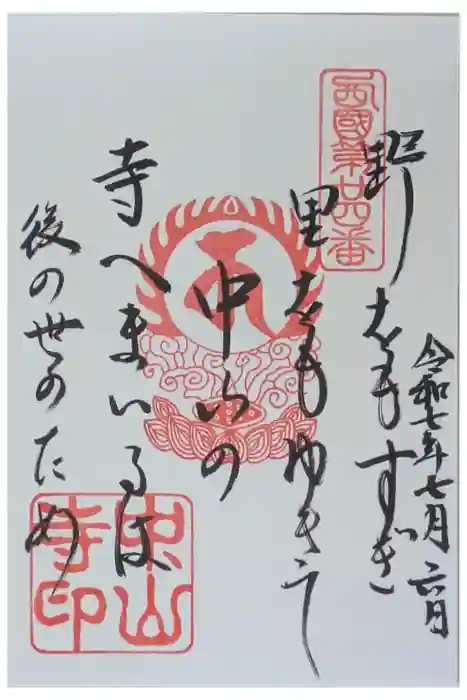 令和七年七月六日
西國第廿四番
野をもすぎ
里をもゆきて
中山の
寺へまいるは
後の世のため
中山寺印